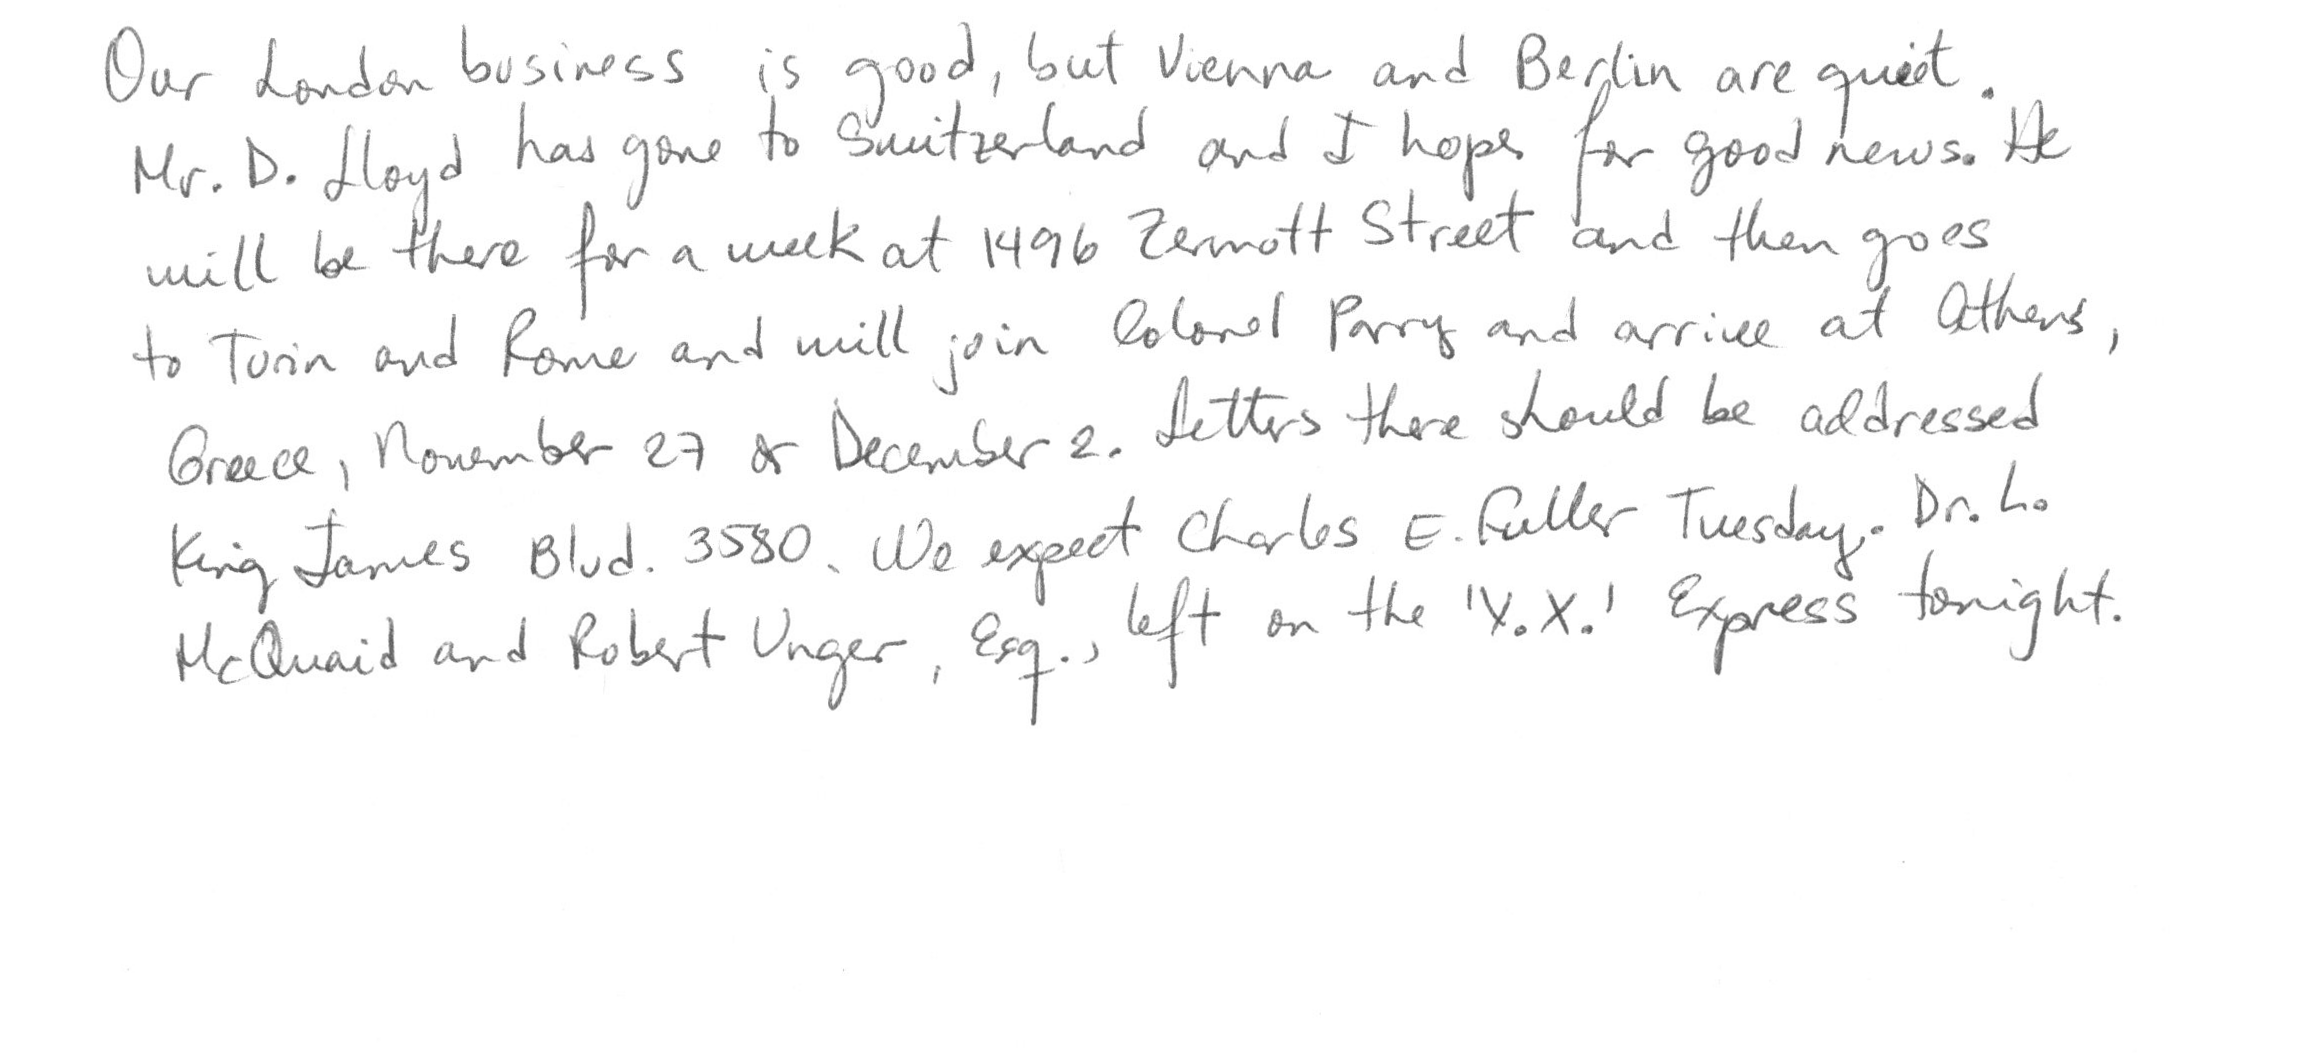 Our London business is good, but Vienna and Berlin are quiet.
Mr. D. Lloyd has gone to Switzerland and I hope for good news. He
will be there for a week at 1496 Zermott Street and then goes
to Turin and Rome and will join Colonel Parry and arrive at Athens,
Greece, November 27 or December 2. Letters there should be addressed
King James Blvd. 3580. We expect Charles E. Fuller Tuesday. Dr. L.
McQuaid and Robert Unger, Esq., left on the 'Y.X.' Express tonight.